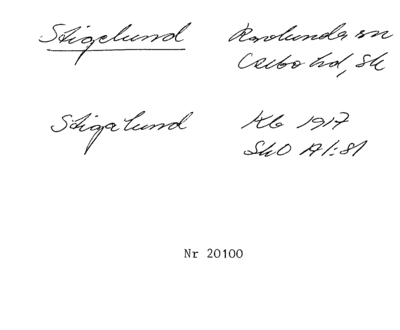 Stigelund Ravlunda sn
Albo hd, Sk
Stigalund Kb 1917
SkO A 1:81
Nr 20100